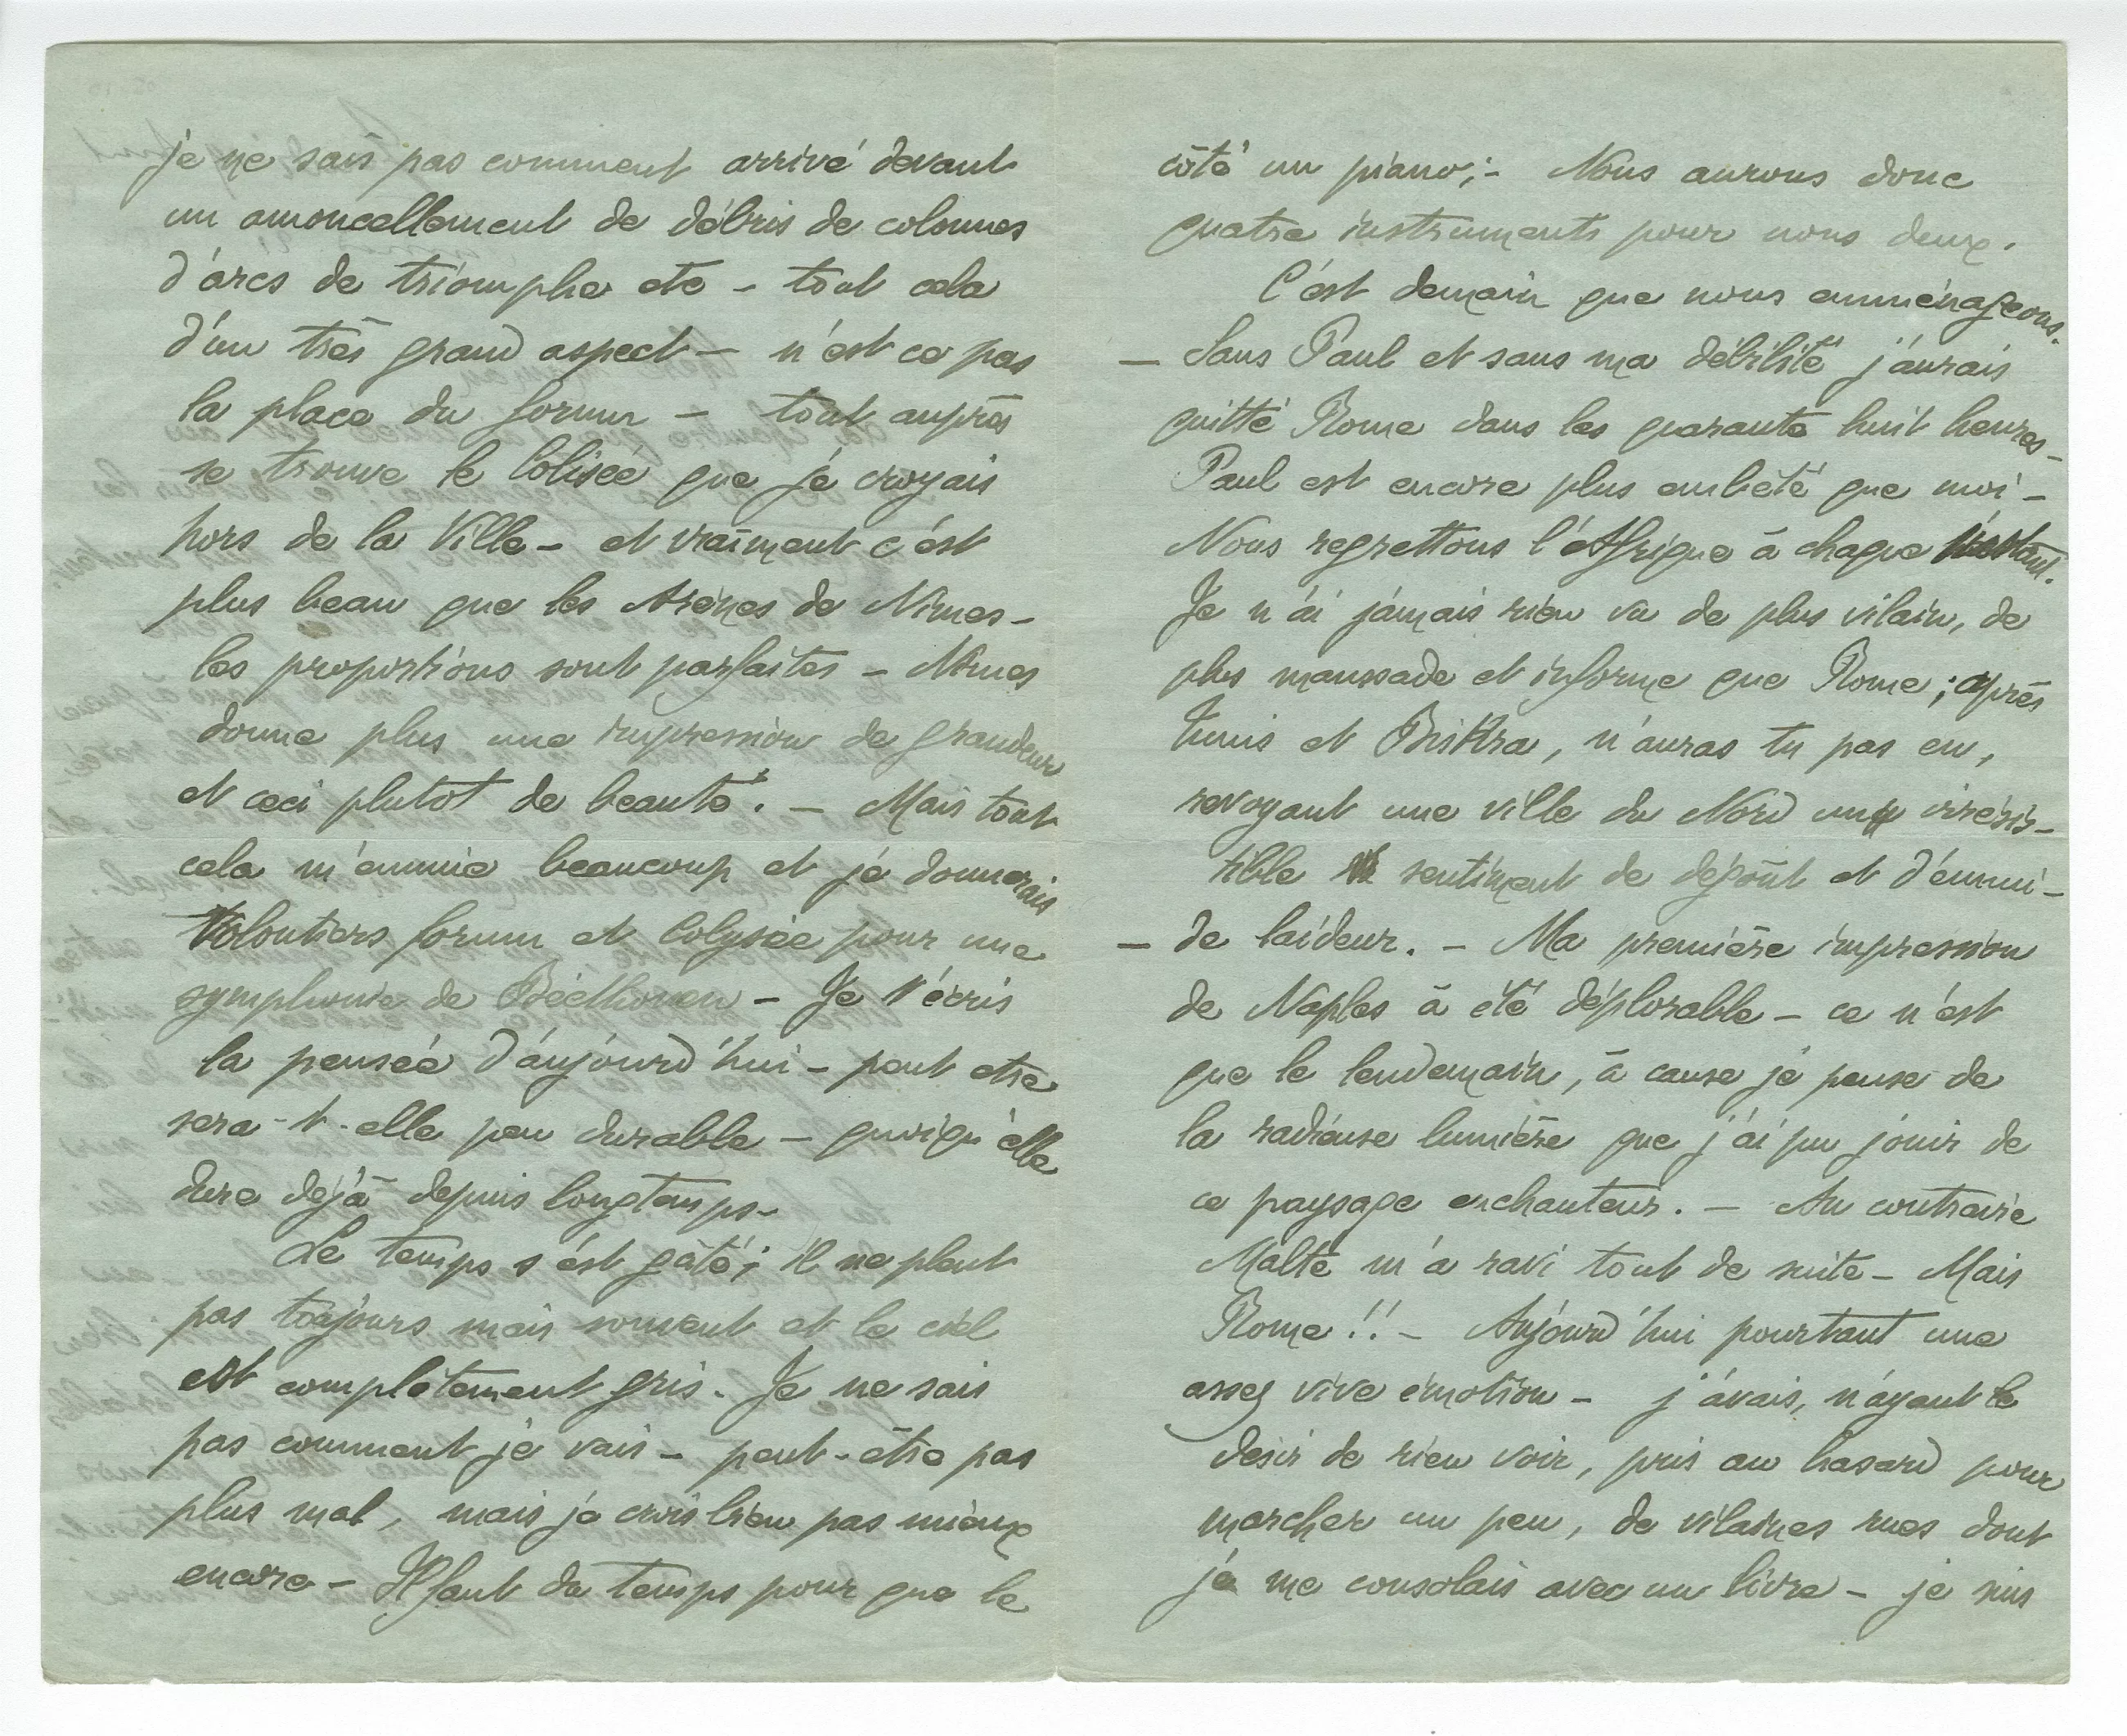 je ne sais pas comment arrivé devant
un amoncellement de débris de colonnes
d'arcs de triomphe etc – tout cela
d'un très grand aspect – n'est ce pas
la place du forum – tout auprès
se trouve le Colisée que je croyais
hors de la Ville – et vraiment c'est
plus beau que les Arènes de Nimes –
les proportions sont parfaites – Nimes
donne plus une impression de grandeur
et ceci plutot de beauté. – Mais tout
cela m'ennuie beaucoup et je donnerais
volontiers forum et Colysée pour une
symphonie de Béethoven – Je t'écris
la pensée d'aujourd'hui – peut etre
sera-t-elle peu durable – quoiqu'elle
dure déjà depuis longtemps –
Le temps s'est gâté; il ne pleut
pas toujours mais souvent et le ciel
est complètement gris. Je ne sais
pas comment je vais – peut-être pas
plus mal, mais je crois bien pas mieux
encore – Il faut du temps pour que le
côté un piano; – Nous aurons donc
quatre instruments pour nous deux.
C'est demain que nous emménageons.
– Sans Paul et sans ma débilité j'aurais
quitté Rome dans les quarante huit heures –
Paul est encore plus embêté que moi –
Nous regrettons l'Afrique à chaque instant.
Je n'ai jamais rien vu de plus vilain, de
plus maussade et informe que Rome; après
Tunis et Biskra, n'auras tu pas eu,
revoyant une ville du Nord un irrésis–
tible sentiment de dégoût et d'ennui –
– de laideur. – Ma première impression
de Naples à été déplorable – ce n'est
que le lendemain, à cause je pense de
la radieuse lumière que j'ai pu jouir de
ce paysage enchanteur. – Au contraire
Malte m'a ravi tout de suite – Mais
Rome!! – Aujourd'hui pourtant une
assez vive émotion – j'avais, n'ayant le
desir de rien voir, pris au hasard pour
marcher un peu, de vilaines rues dont
je me consolais avec un livre – je suis